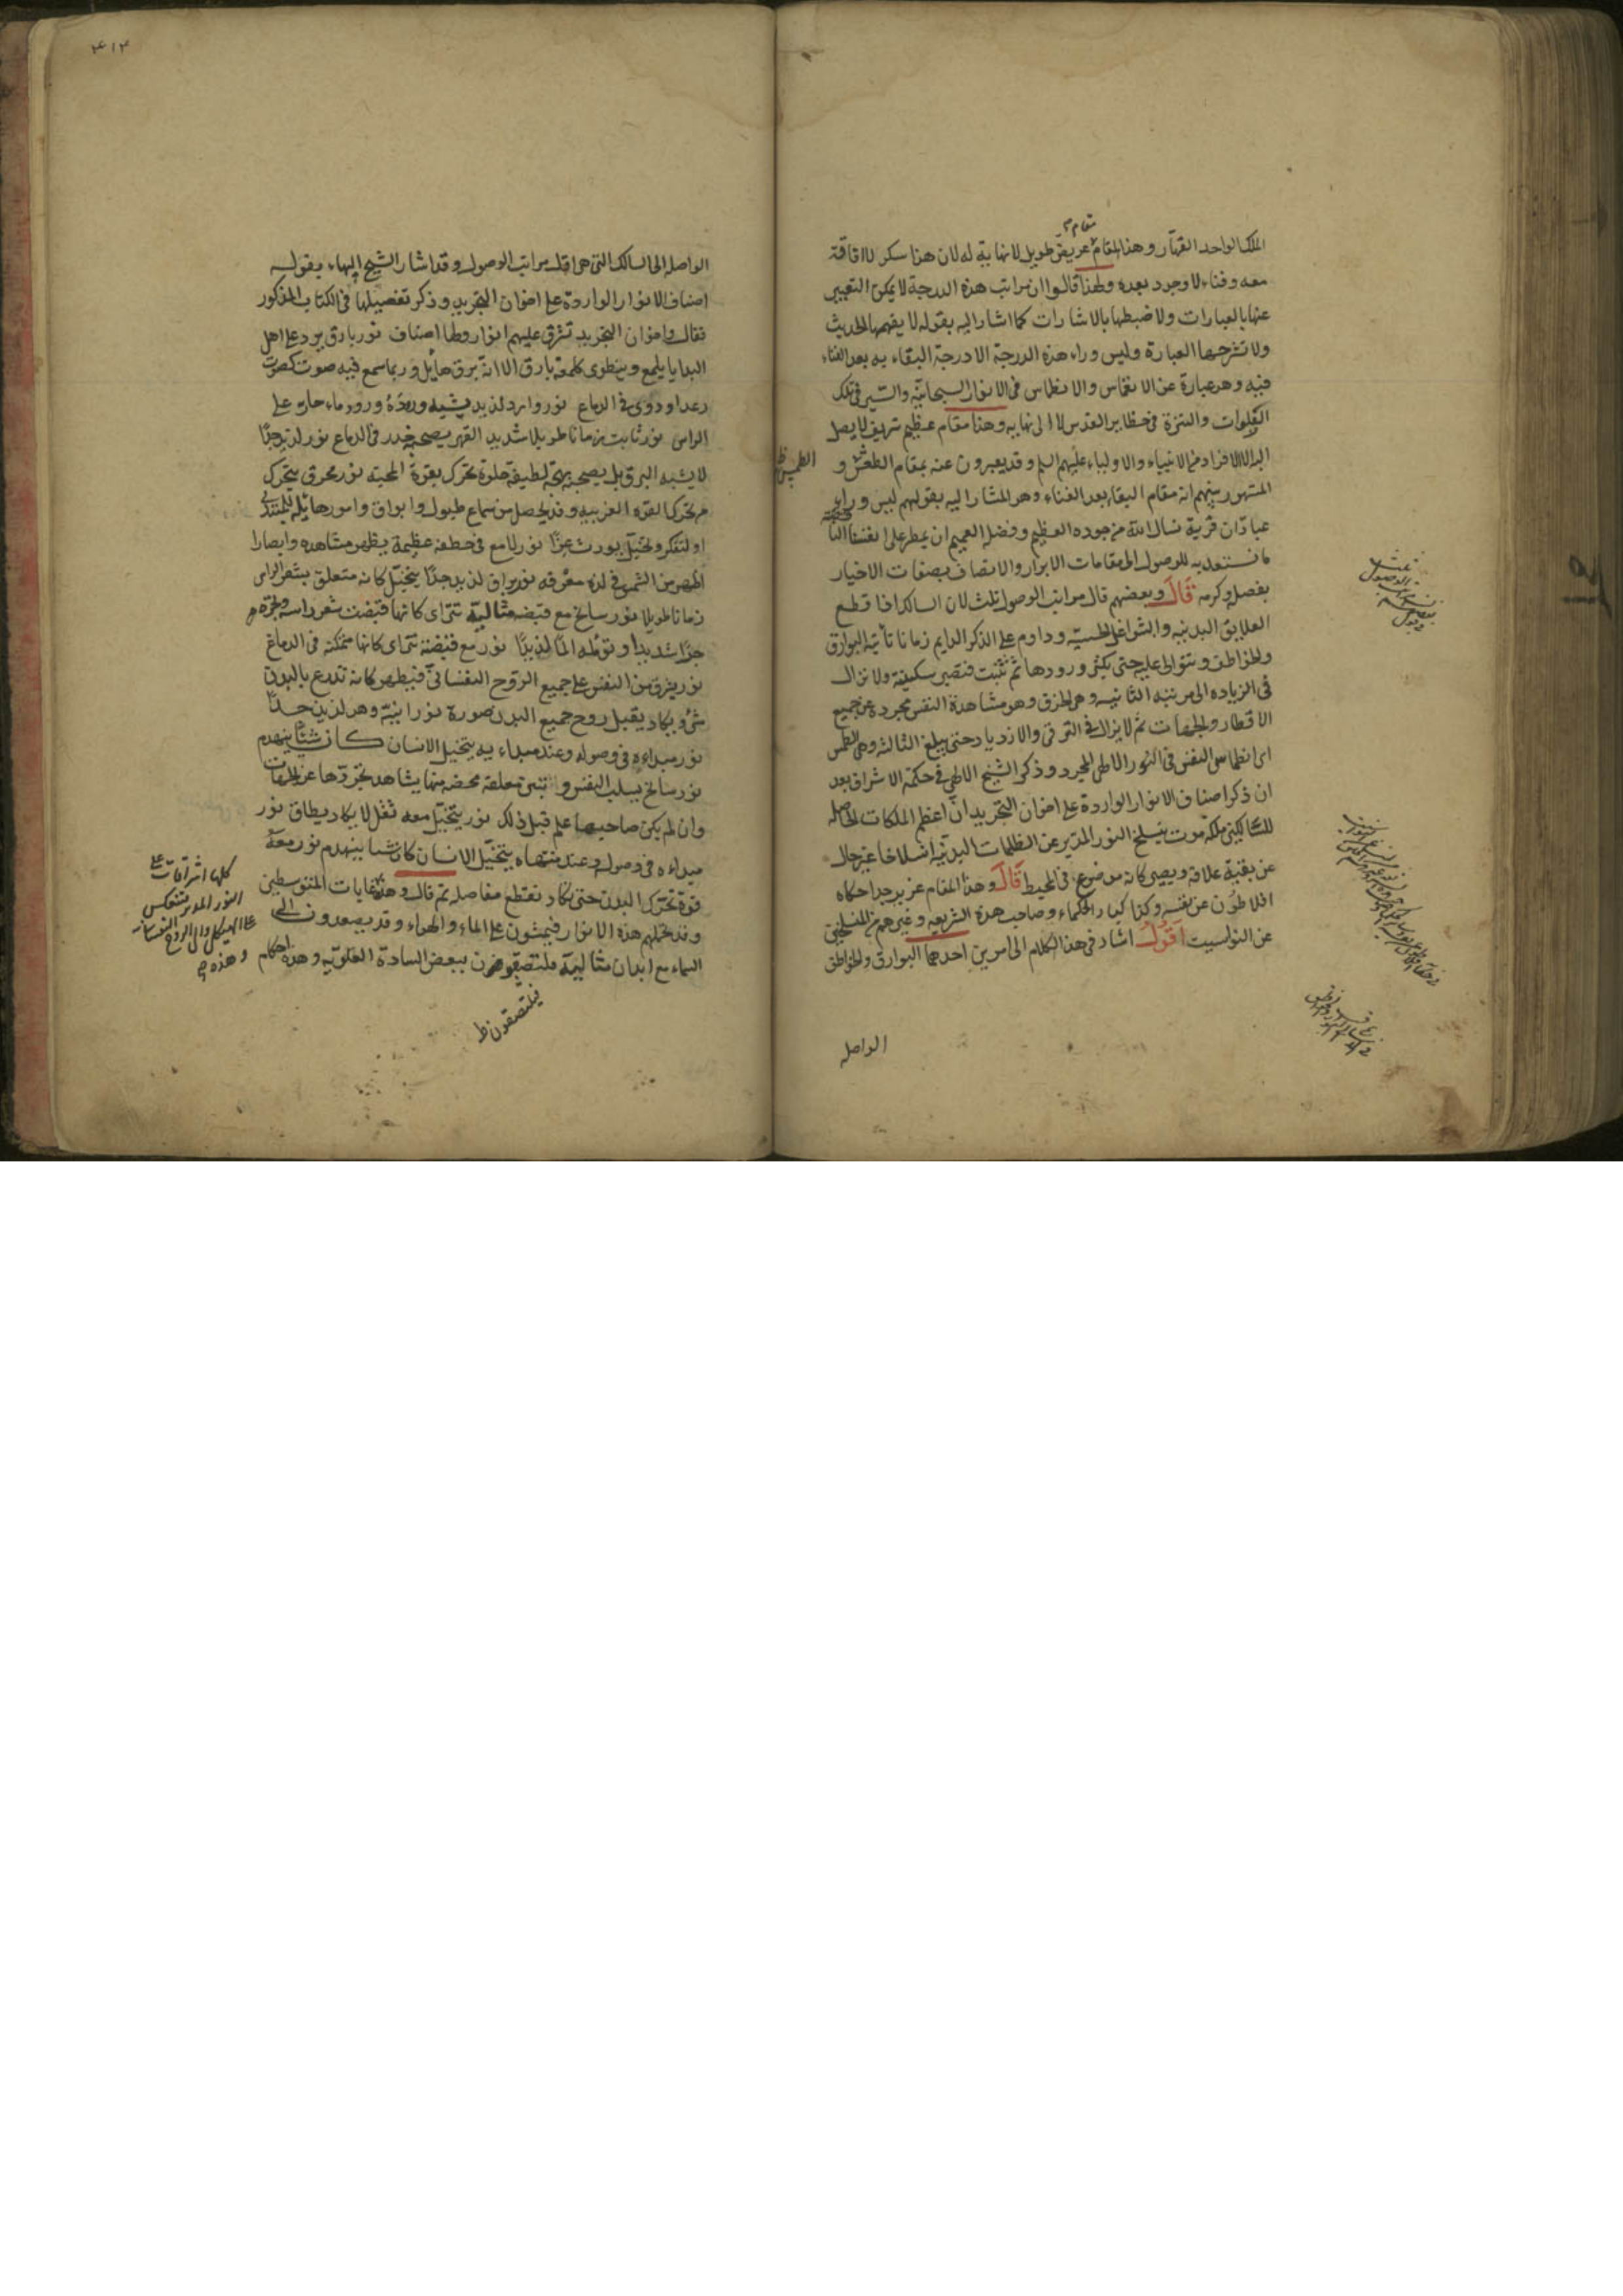 مقام
الملك الواحد القهّار وهذا المقام عريض طويل لا نهاية له لان هذا سكر لا افاقة
معه وفناء لا وجود بعده ولهذا قالوا ان مراتب هذه الدرجة لا يمكن التعبير
عنها بالعبارات ولا ضبطها بالاشارات كما اشار اليه بقوله لا يفهمها الحديث
ولا تشرحها العبارة وليس وراء هذه الدرجة الا درجة البقاء به بعد الفناء
فيه وهو عبارة عن الانغماس والانطماس فى الانوار السبحانيّة والسّير فى تلك
والتنزه فى حظاير القدس لا الى نهايه وهذا مقام عظيم شريف لا يصل
اليه الا الافراد من الانبياء والاولياء عليهم السلم وقد يعبرون عنه بمقام الطمس و
الطمس ظ
المشهور بينهم انه مقام البقاء بعد الفناء وهو المشار اليه بقولهم ليس وراء
عبادّان قرية نسال الله من جوده العظيم وفضله العميم ان يمطر على انفسنا
ما نستعد به للوصول الى مقامات الابرار والاتصاف بصفات الاخيار
بفضله وكرمه قال وبعضهم قال مراتب الوصول ثلث لان السالك اذا قطع
العلايق البدنيه والشواغل الحسيّه وداوم على الذكر الدايم زمانا تأتيه البوارق
والخواطف وتتوالى عليه حتى يكثر ورودها ثم تثبت فتصير سكينة ولا تزال
فى الزياده الى مرتبته الثانيه وهى الخرق وهو مشاهدة النفس مجردة عن جميع
الاقطار والجهات ثم لا يزال فى الترقى والازدياد حتى يبلغ الثالثه وهى الطمس
اى انطماس النفس فى النور الالهى المجرد وذكر الشيخ الالهى فى حكمة الاشراق بعد
ان ذكر اصناف الانوار الواردة على اخوان التجريد ان اعظم الملكات الحاصله
للسّالكين ملكة موت ينسلخ النور المدبّر عن الظلمات البدنيّه انسلاخا غير خال
عن بقيّة علاقه ويصير كانه موضوع فى المحيط قال وهذا المقام عزيز جدا حكاه
افلاطون عن نفسه وكذا كبار الحكماء وصاحب هذه الشريعه وغيرهم من المنسلخين
عن النواسيت اقول اشار فى هذا الكلام الى امرين احدهما البوارق والخواطف
الواصله
٤١٢
الواصله الى السالك التى هى اقل مراتب الوصول وقد اشار الشيخ اليها بقوله
اصناف الانوار الواردة على اخوان التجريد وذكر تفصيلها فى الكتاب المذكور
فقال واخوان التجريد تشرق عليهم انوار ولها اصناف نور بارق يرد على اهل
البدايا يلمع وينطوى كلمعة بارق الا انه برق هايل وربما سمع فيه صوت كصوت
رعد او دوى فى الدماغ نور وارد لذيذ يشبه وروده ورود ماء حار على
الراس نور ثابت زمانا طويلا شديد القهر يصحبه خدر فى الدماغ نور لذيذ جدّا
لا يشبه البرق بل يصحبه بهجة لطيفة حلوة تحرك بقوة المحبة نور محرق يتحرك
من تحرك القوه العزيه وقد يحصل من سماع طبول وابواق وامور هايله للمبتدى
او لتفكر وتخيل يورث عزّا نور لامع فى خطفة عظيمة يظهر مشاهده وابصارا
اظهر من الشمس فى لذة مغرقه نور براق لذيذ جدّا يتخيّل كانه متعلق بشعر الراس
زمانا طويلا نور سانح مع قبضة مثاليّة تترا‌ى كانها قبضت شعر راسه وتجره
جرّا شديدا وتؤلمه المًا لذيذًا نور مع قبضته تترا‌ى كانها متمكنه فى الدماغ
نور يشرق من النفس على جميع الروح النفسانىّ فيظهر كانه تدرع بالبدن
شئ ويكاد يقبل روح جميع البدن صورة نورانيّة وهو لذيذ جدًّا
نور مبداءه فى وصوله وعند مبداءه يتخيل الانسان كان شيئًا ينهدم
نور سانح يسلب النفس و تتبين معلقة محضه منها يشاهد تجرّدها عن الجهات
وان لم يكن صاحبها علم قبل ذلك نور يتخيّل معه ثقل لا يكاد يطاق نور
مبداءه فى وصوله وعند منتهاه يتخيّل الانسان كان شيئا ينهدم نور معه
قوة تحرّك البدن حتى يكاد تقطع مفاصله ثم قال وهذه غايات المتوسطين
وقد تحملهم هذه الانوار فيمشون على الماء والهواء وقد يصعدون الى
السماء مع ابدان مثاليّة فيلتصقون ببعض السادة العلويّه وهذه احكام
فيلتصقون ظ
كلها اشراقات على
النور المدبر فتنعكس
على الهيكل والى الروح النفسانى
وهذه